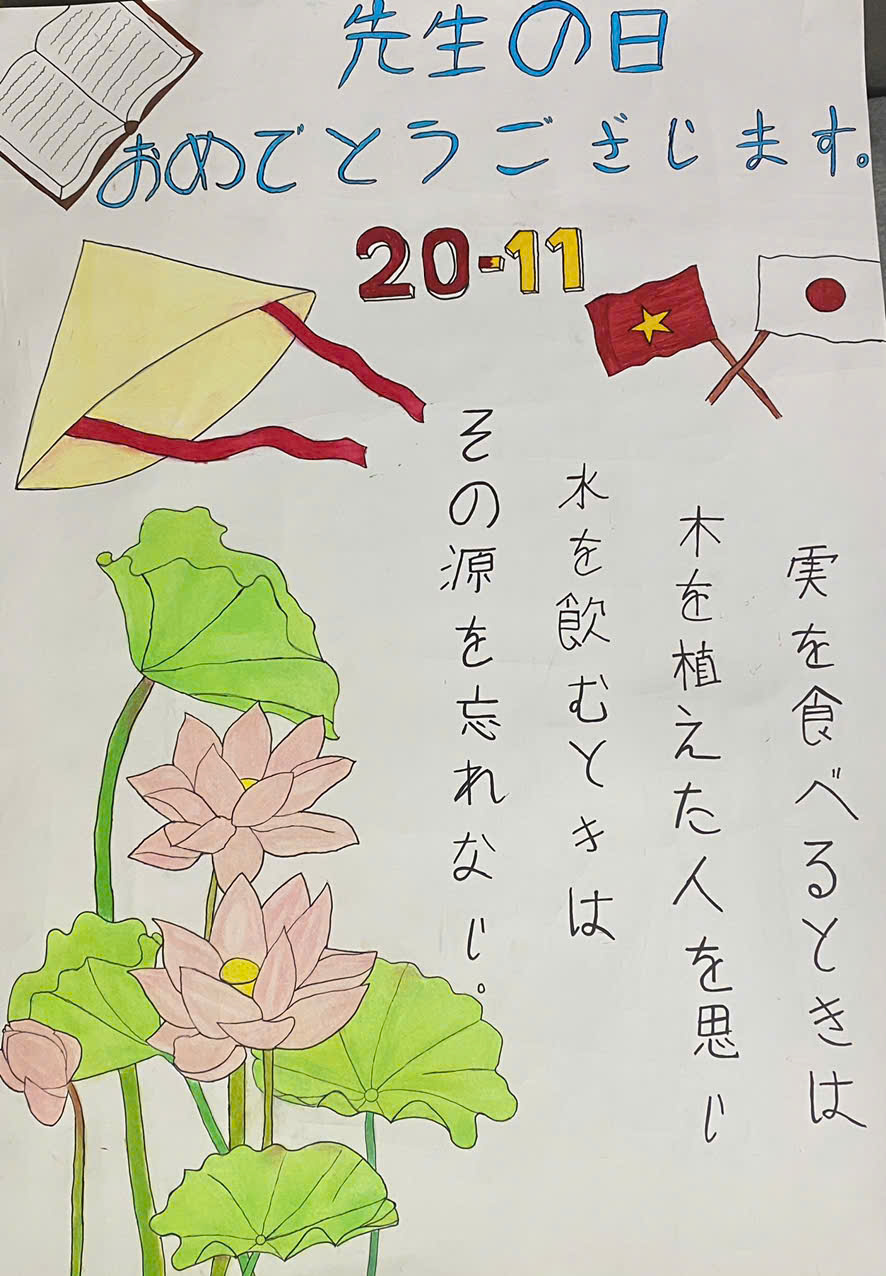 先生の日
おめでとうございます。
20-11
実を食べるときは
木を植えた人を思い
水を飲むときは
その源を忘れない。